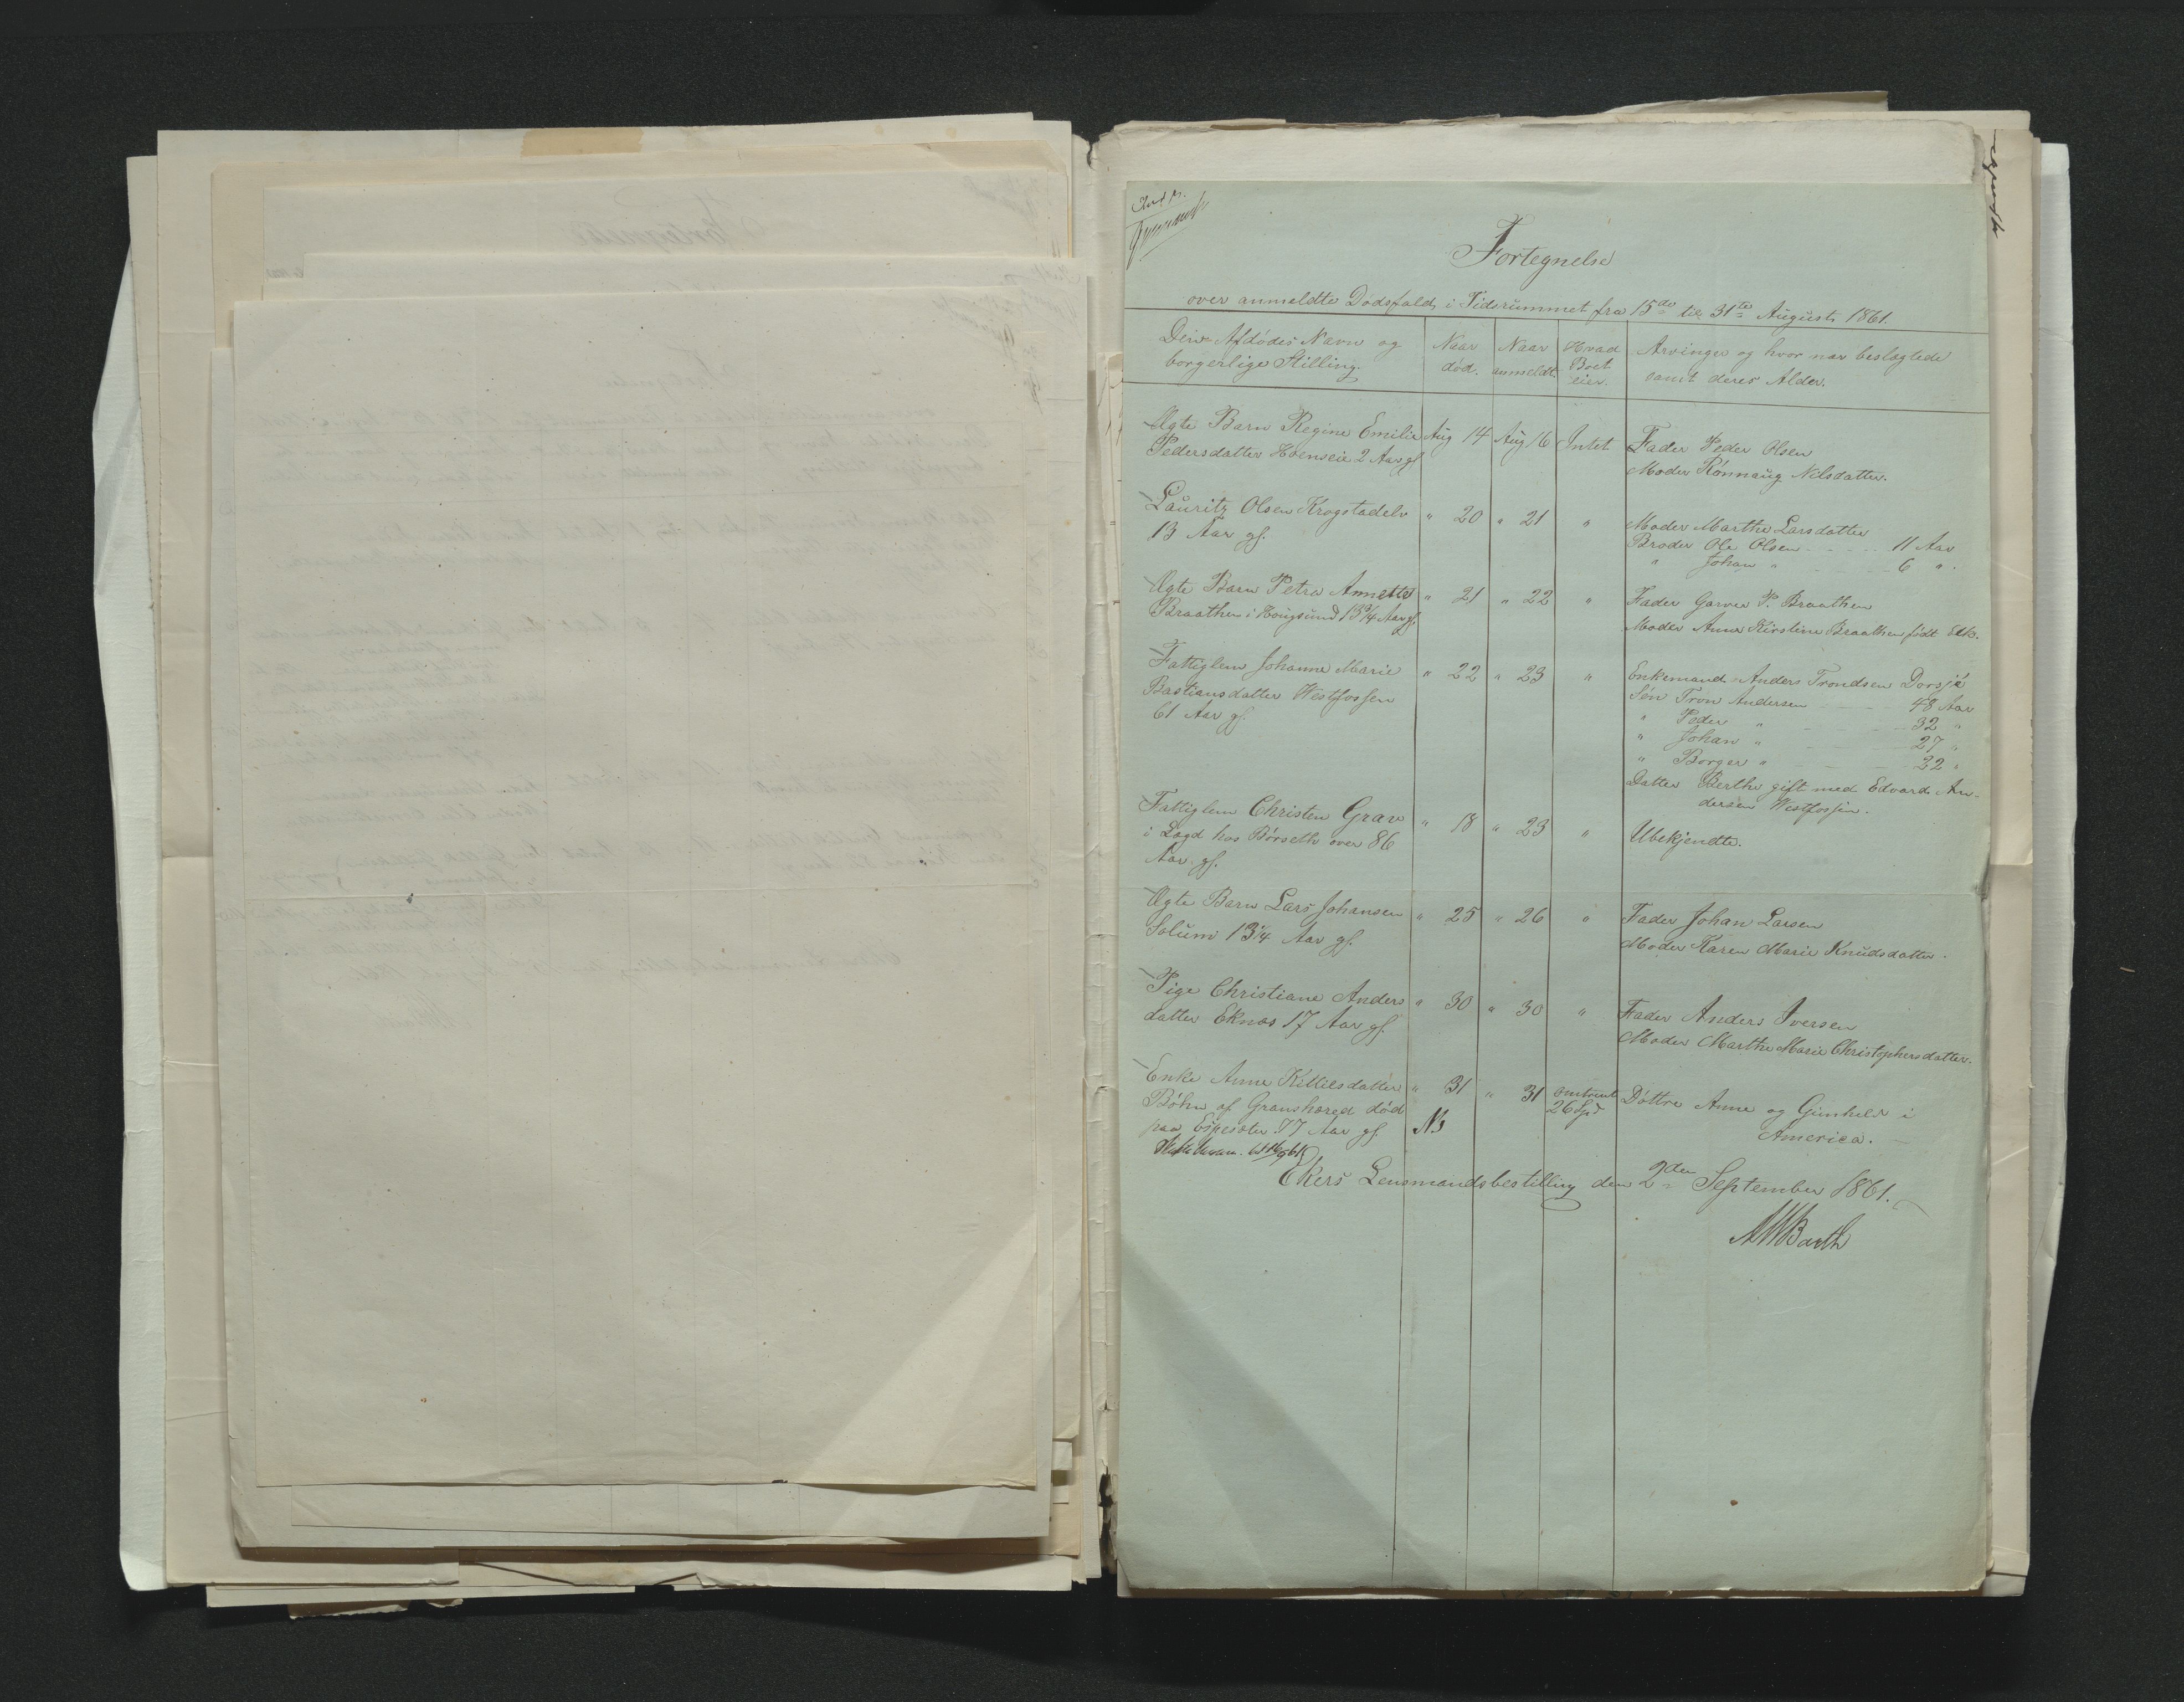 Fortegnelse
over anmeldte Dødsfald i Tidsrummet fra 15de til 31te August 1861.
Den Afdødes Navn og borgerlige Stilling.
Naar død.
Naar anmeldt.
Hvad Boet eier.
Arvinger og hvor nær beslægtede samt deres Alder.
Ægte Barn Regine Emilie Aug 14 Aug 16 Intet Fader Peder Olsen
Pedersdatter Hoenseie 2 Aar gl. Moder Rønnaug Nilsdatter.
Lauritz Olsen Krogstadelv " 20 " 21 " Moder Marthe Larsdatter
13 Aar gl. Broder Ole Olsen 11 Aar
" Johan " 6 "
Ægte Barn Petra Annette " 21 " 22 " Fader Garver P. Braathen
Braathen i Hougsund 13 3/4 Aar gl. Moder Anne Kirstine Braathen født Eek.
Fattiglem Johanne Marie " 22 " 23 " Enkemand Anders Trondsen Dorsjø
Bastiansdatter Westfossen Søn Tron Andersen 48 Aar
61 Aar gl. " Peder " 32 "
" Johan " 27 "
" Borger " 22 "
Datter Berthe gift med Edvard An-
dersen Westfossen.
Fattiglem Christen Grav " 18 " 23 " Ubekjendte.
i Lægd hos Børseth over 86
Aar gl.
Ægte Barn Lars Johansen " 25 " 26 " Fader Johan Larsen
Solum 1 3/4 Aar gl. Moder Karen Marie Knudsdatter.
Pige Christiane Anders " 30 " 30 " Fader Anders Iversen
datter Eknes 17 Aar gl. Moder Marthe Marie Christophersdatter.
Enke Anne Kittilsdatter " 31 " 31 omtrent 26 Spd Døttre Anne og Gunhild i
Bøhn af Gransherred død America.
paa Espeseter 77 Aar gl. N3
Ekers Lensmandsbestilling den 2den September 1861.
MWBarth